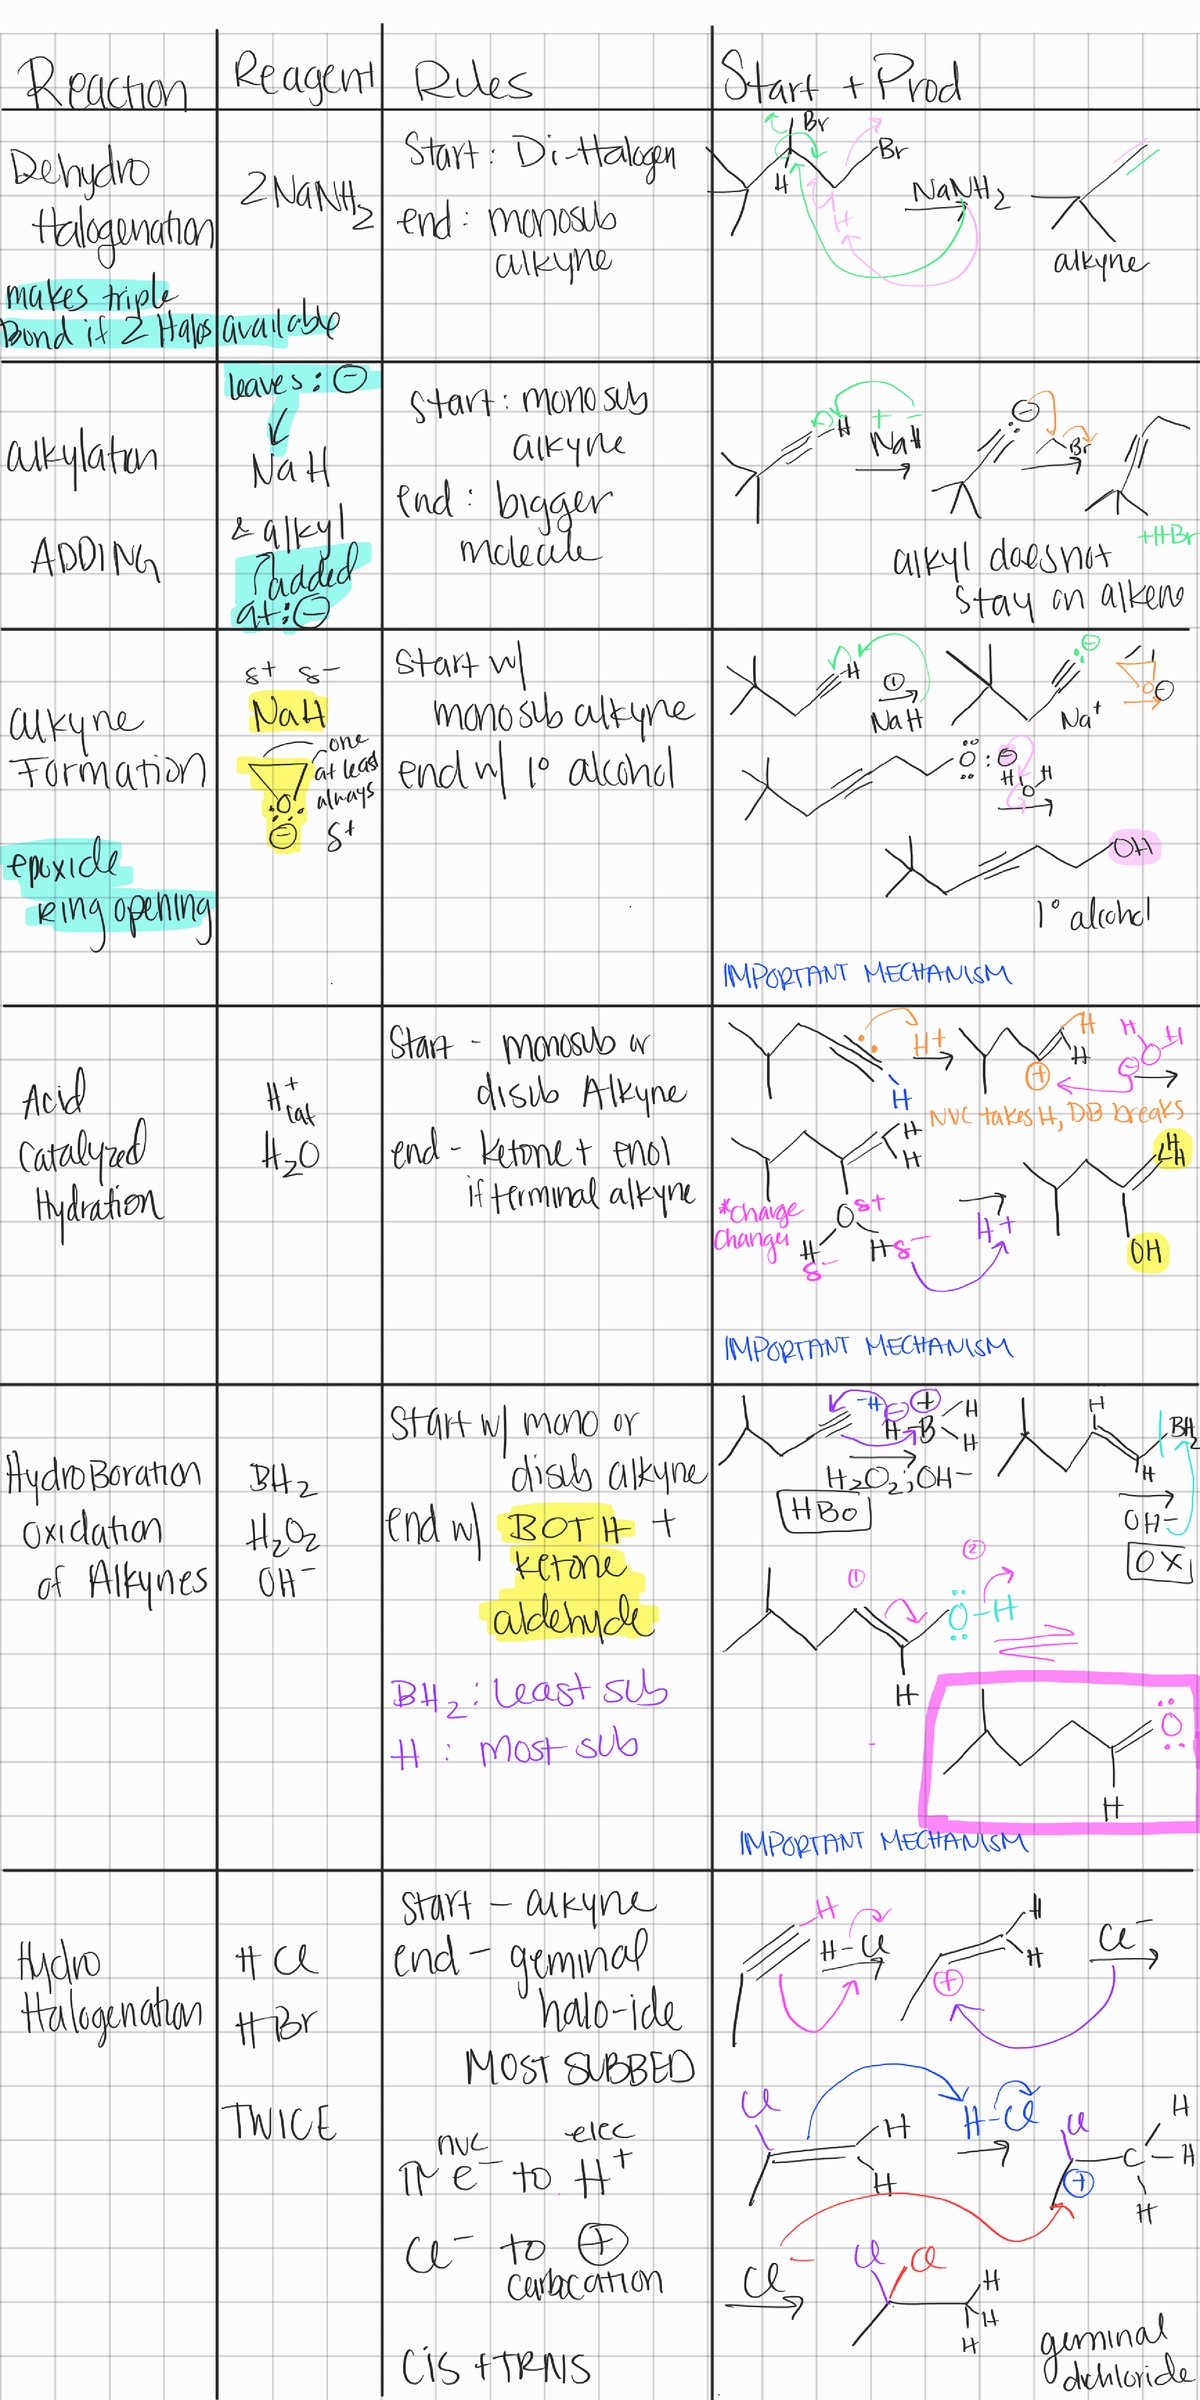 Reaction
Reagent
Rules
Start + Prod
Dehydro
Halogenation
makes triple
Bond if 2 Halos available
2NaNH2
Start: Di-Halogen
end: monosub
alkyne
Br
Br
H
H
NaNH2
alkyne
alkylation
ADDING
leaves: ⊖
NaH
& alkyl
added
at: ⊖
Start: monosub
alkyne
end: bigger
molecule
H
+ -
NaH
⊖
Br
+HBr
alkyl does not
stay on alkene
alkyne
Formation
epoxide
ring opening
δ+ δ-
NaH
one
at least
always
O
⊖ δ+
Start w/
monosub alkyne
end w/ 1° alcohol
H
①
NaH
⊖
Na+
O
⊖
O: ⊖
H O H
OH
1° alcohol
IMPORTANT MECHANISM
Acid
Catalyzed
Hydration
H+ cat
H2O
Start - monosub or
disub Alkyne
end - ketone + enol
if terminal alkyne
H+
H
H
H
⊕
H
O
H
⊖
NUC takes H, DB breaks
H
H
*Charge
Changes
O δ+
H
δ-
H δ-
H+
H
H
OH
IMPORTANT MECHANISM
HydroBoration
Oxidation
of Alkynes
BH2
H2O2
OH-
Start w/ mono or
disub alkyne
end w/ BOTH +
ketone
aldehyde
BH2: Least sub
H: most sub
-H ⊖ ⊕
H-B
H
H
H2O2; OH-
HBO
H
BH2
H
OH-
OX
①
②
O-H
H
O
H
IMPORTANT MECHANISM
Hydro
Halogenation
HCl
HBr
TWICE
start - alkyne
end - geminal
halo-ide
MOST SUBBED
nuc elec
π e- to H+
Cl- to ⊕
carbocation
CIS + TRNS
H
H-Cl
H
H
⊕
Cl-
Cl
H
H
H-Cl
Cl
⊕
C
H
H
H
Cl-
Cl Cl
H
H
H
geminal
dichloride